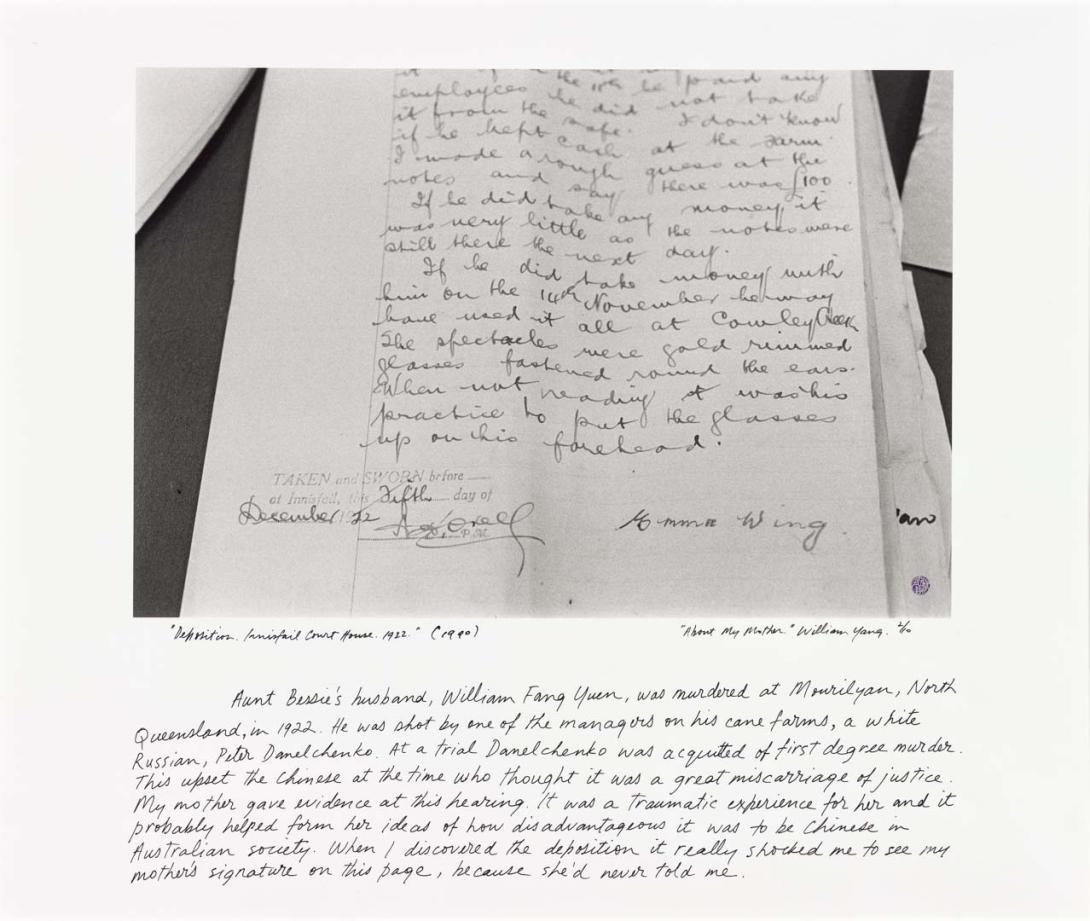 employees he did not take
it from the safe. I don't know
if he kept cash at the Farm.
I made a rough guess at the
notes and say there was £100.
If he did take any money it
was very little as the notes were
still there the next day.
If he did take money with
him on the 14th November he may
have used it all at Cowley Creek
The spectacles were gold rimmed
glasses fastened round the ears.
When not reading it was his
practice to put the glasses
up on his forehead.
TAKEN and SWORN before
at Innisfail, this Fifth day of
December 1922
P.M.
Emma Wing
"Deposition. Innisfail Court House. 1922." (1990)
"About My Mother." William Yang. 2/10
Aunt Bessie's husband, William Fang Yuen, was murdered at Mourilyan, North
Queensland, in 1922. He was shot by one of the managers on his cane farms, a white
Russian, Peter Danelchenko. At a trial Danelchenko was acquited of first degree murder.
This upset the Chinese at the time who thought it was a great miscarriage of justice.
My mother gave evidence at this hearing. It was a traumatic experience for her and it
probably helped form her ideas of how disadvantageous it was to be Chinese in
Australian society. When I discovered the deposition it really shocked me to see my
mother's signature on this page, because she'd never told me.